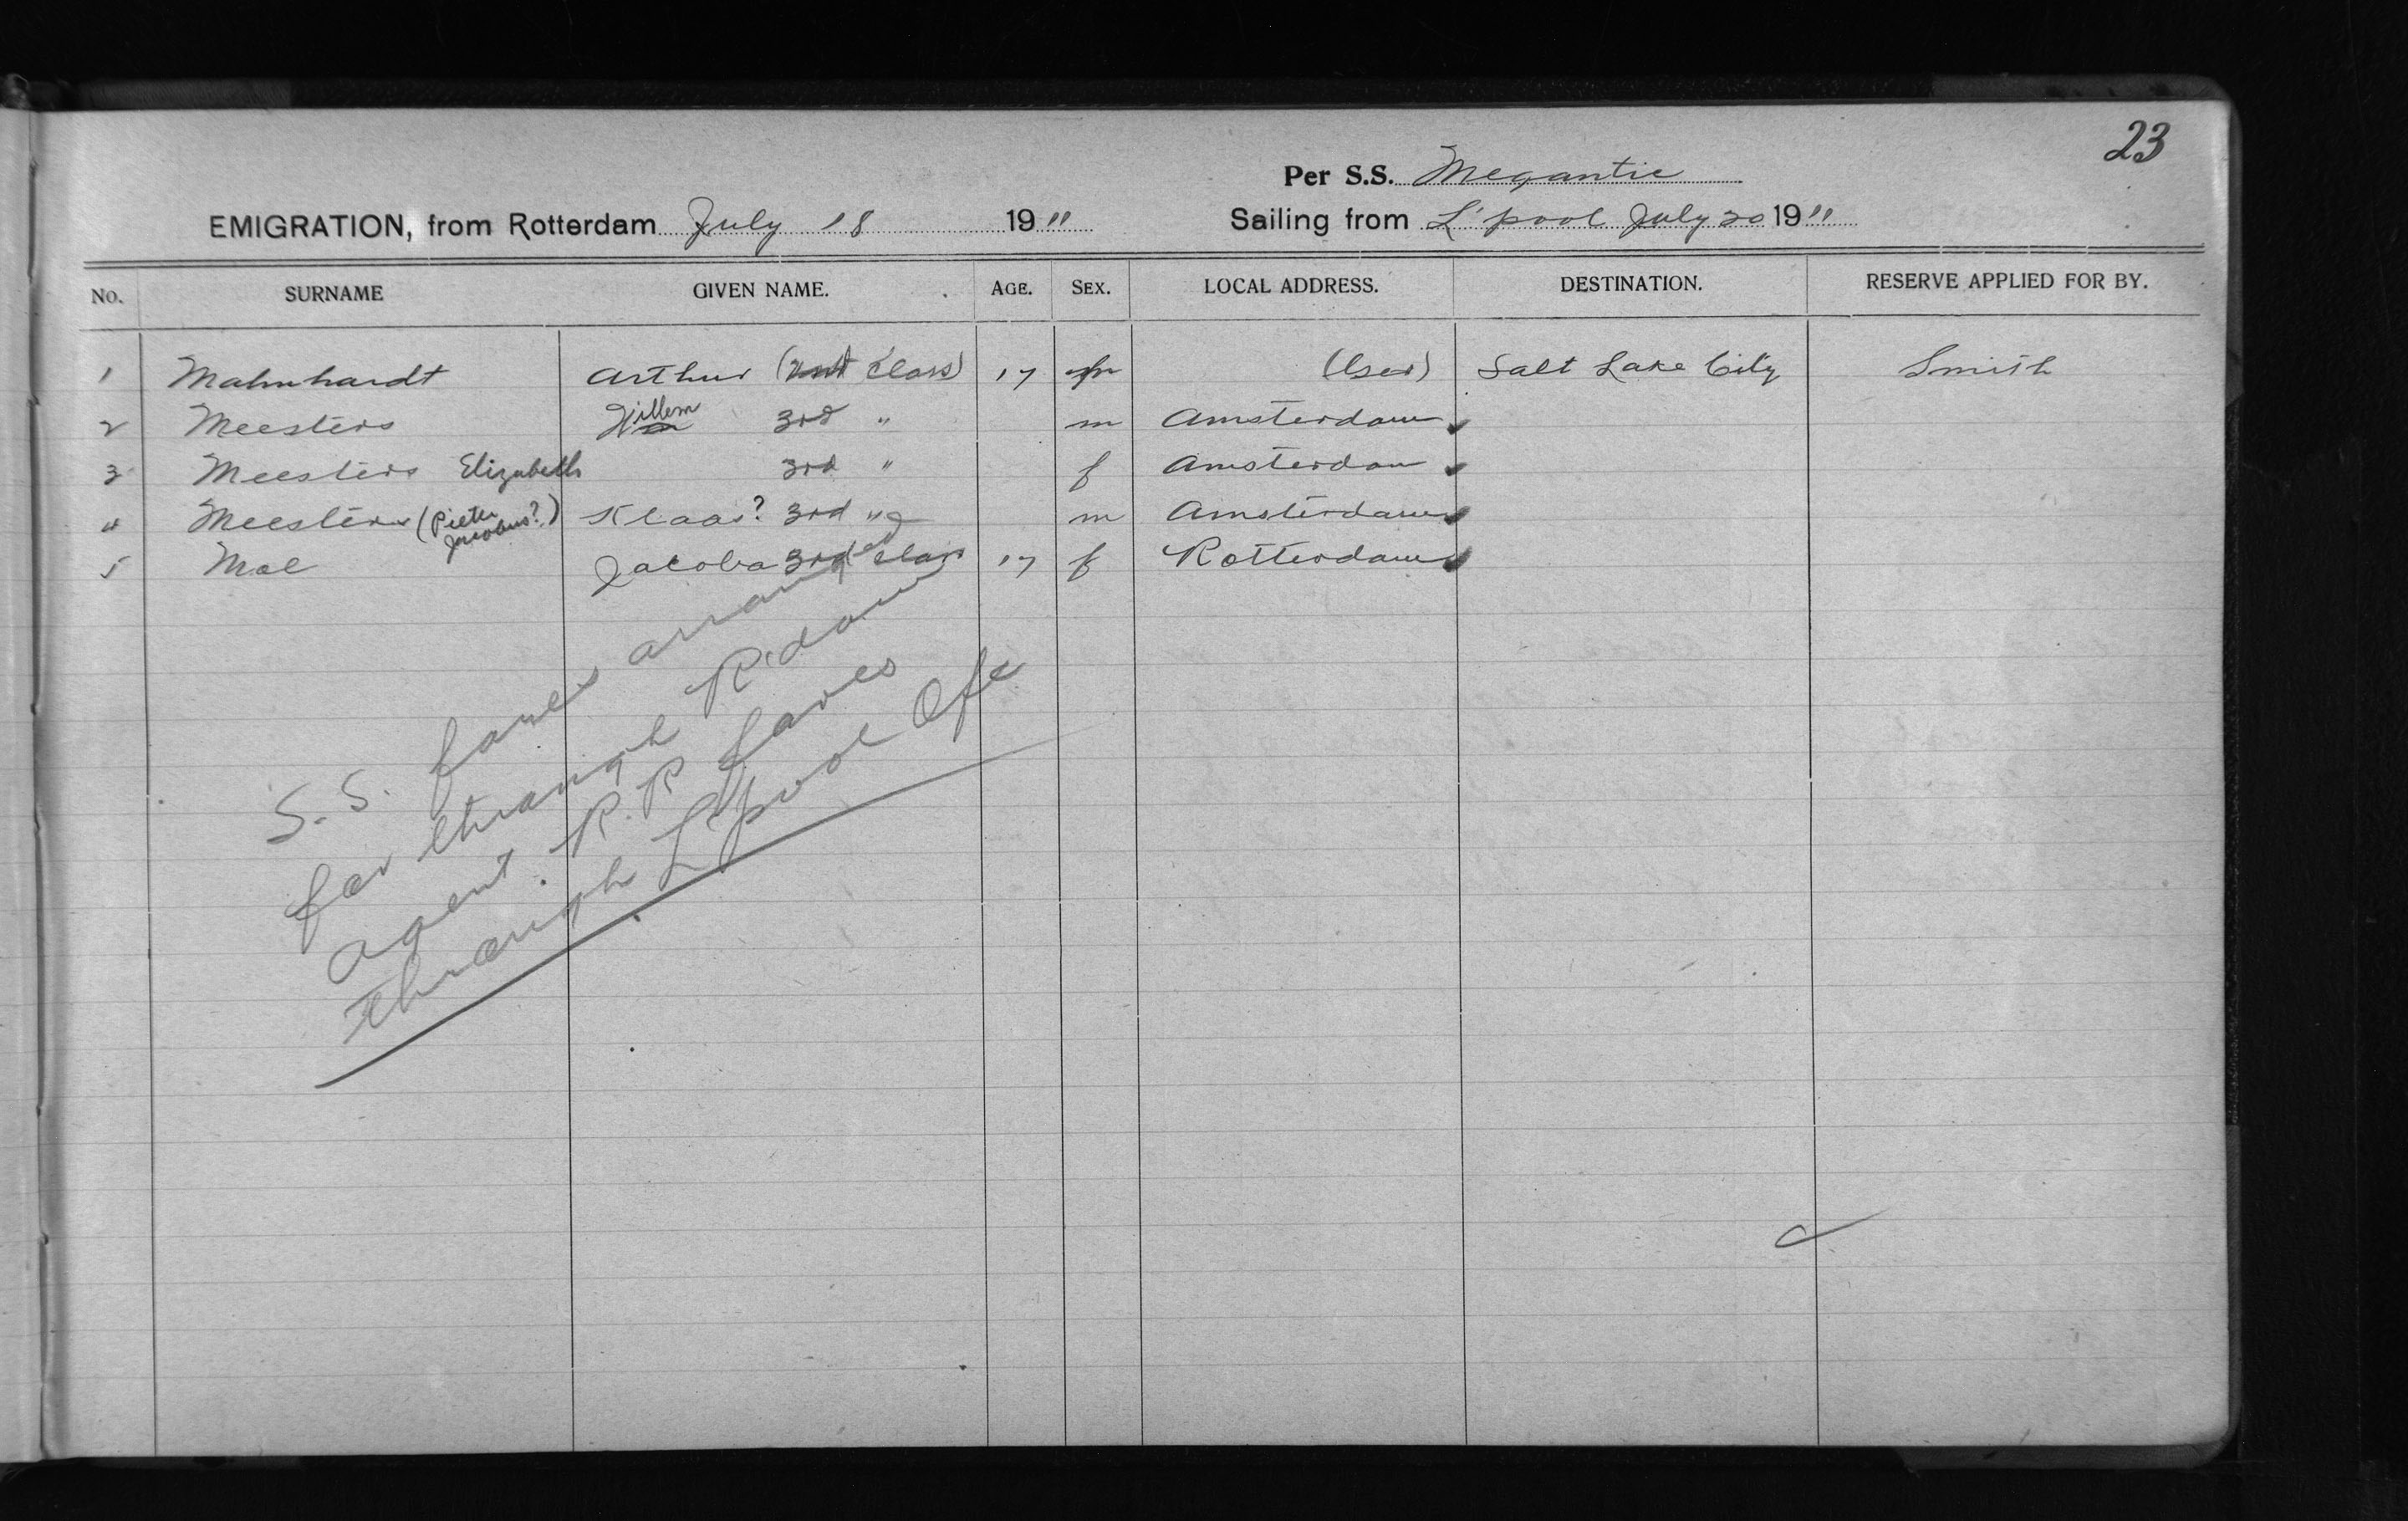 23
Per S.S. Megantic
EMIGRATION, from Rotterdam July 18 1911 Sailing from L'pool July 20 1911
No. SURNAME GIVEN NAME. AGE. SEX. LOCAL ADDRESS. DESTINATION. RESERVE APPLIED FOR BY.
1 Mahnhardt Arthur ( Class) 17 m Salt Lake City Smith
2 Meesters Willem 3rd " m Amsterdam
3 Meesters Elizabeth 3rd " f Amsterdam
4 Meesters (Pieter Jacobus?) Klaas? 3rd " m Amsterdam
5 Mol Jacoba 3rd class 17 f Rotterdam
S.S. fares arranged
for through R'dam
agent. R.R fares
through L'pool Ofc